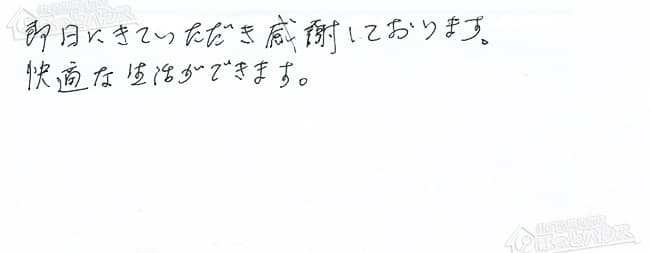 即日にきていただき感謝しております。
快適な生活ができます。
ほっとハウス